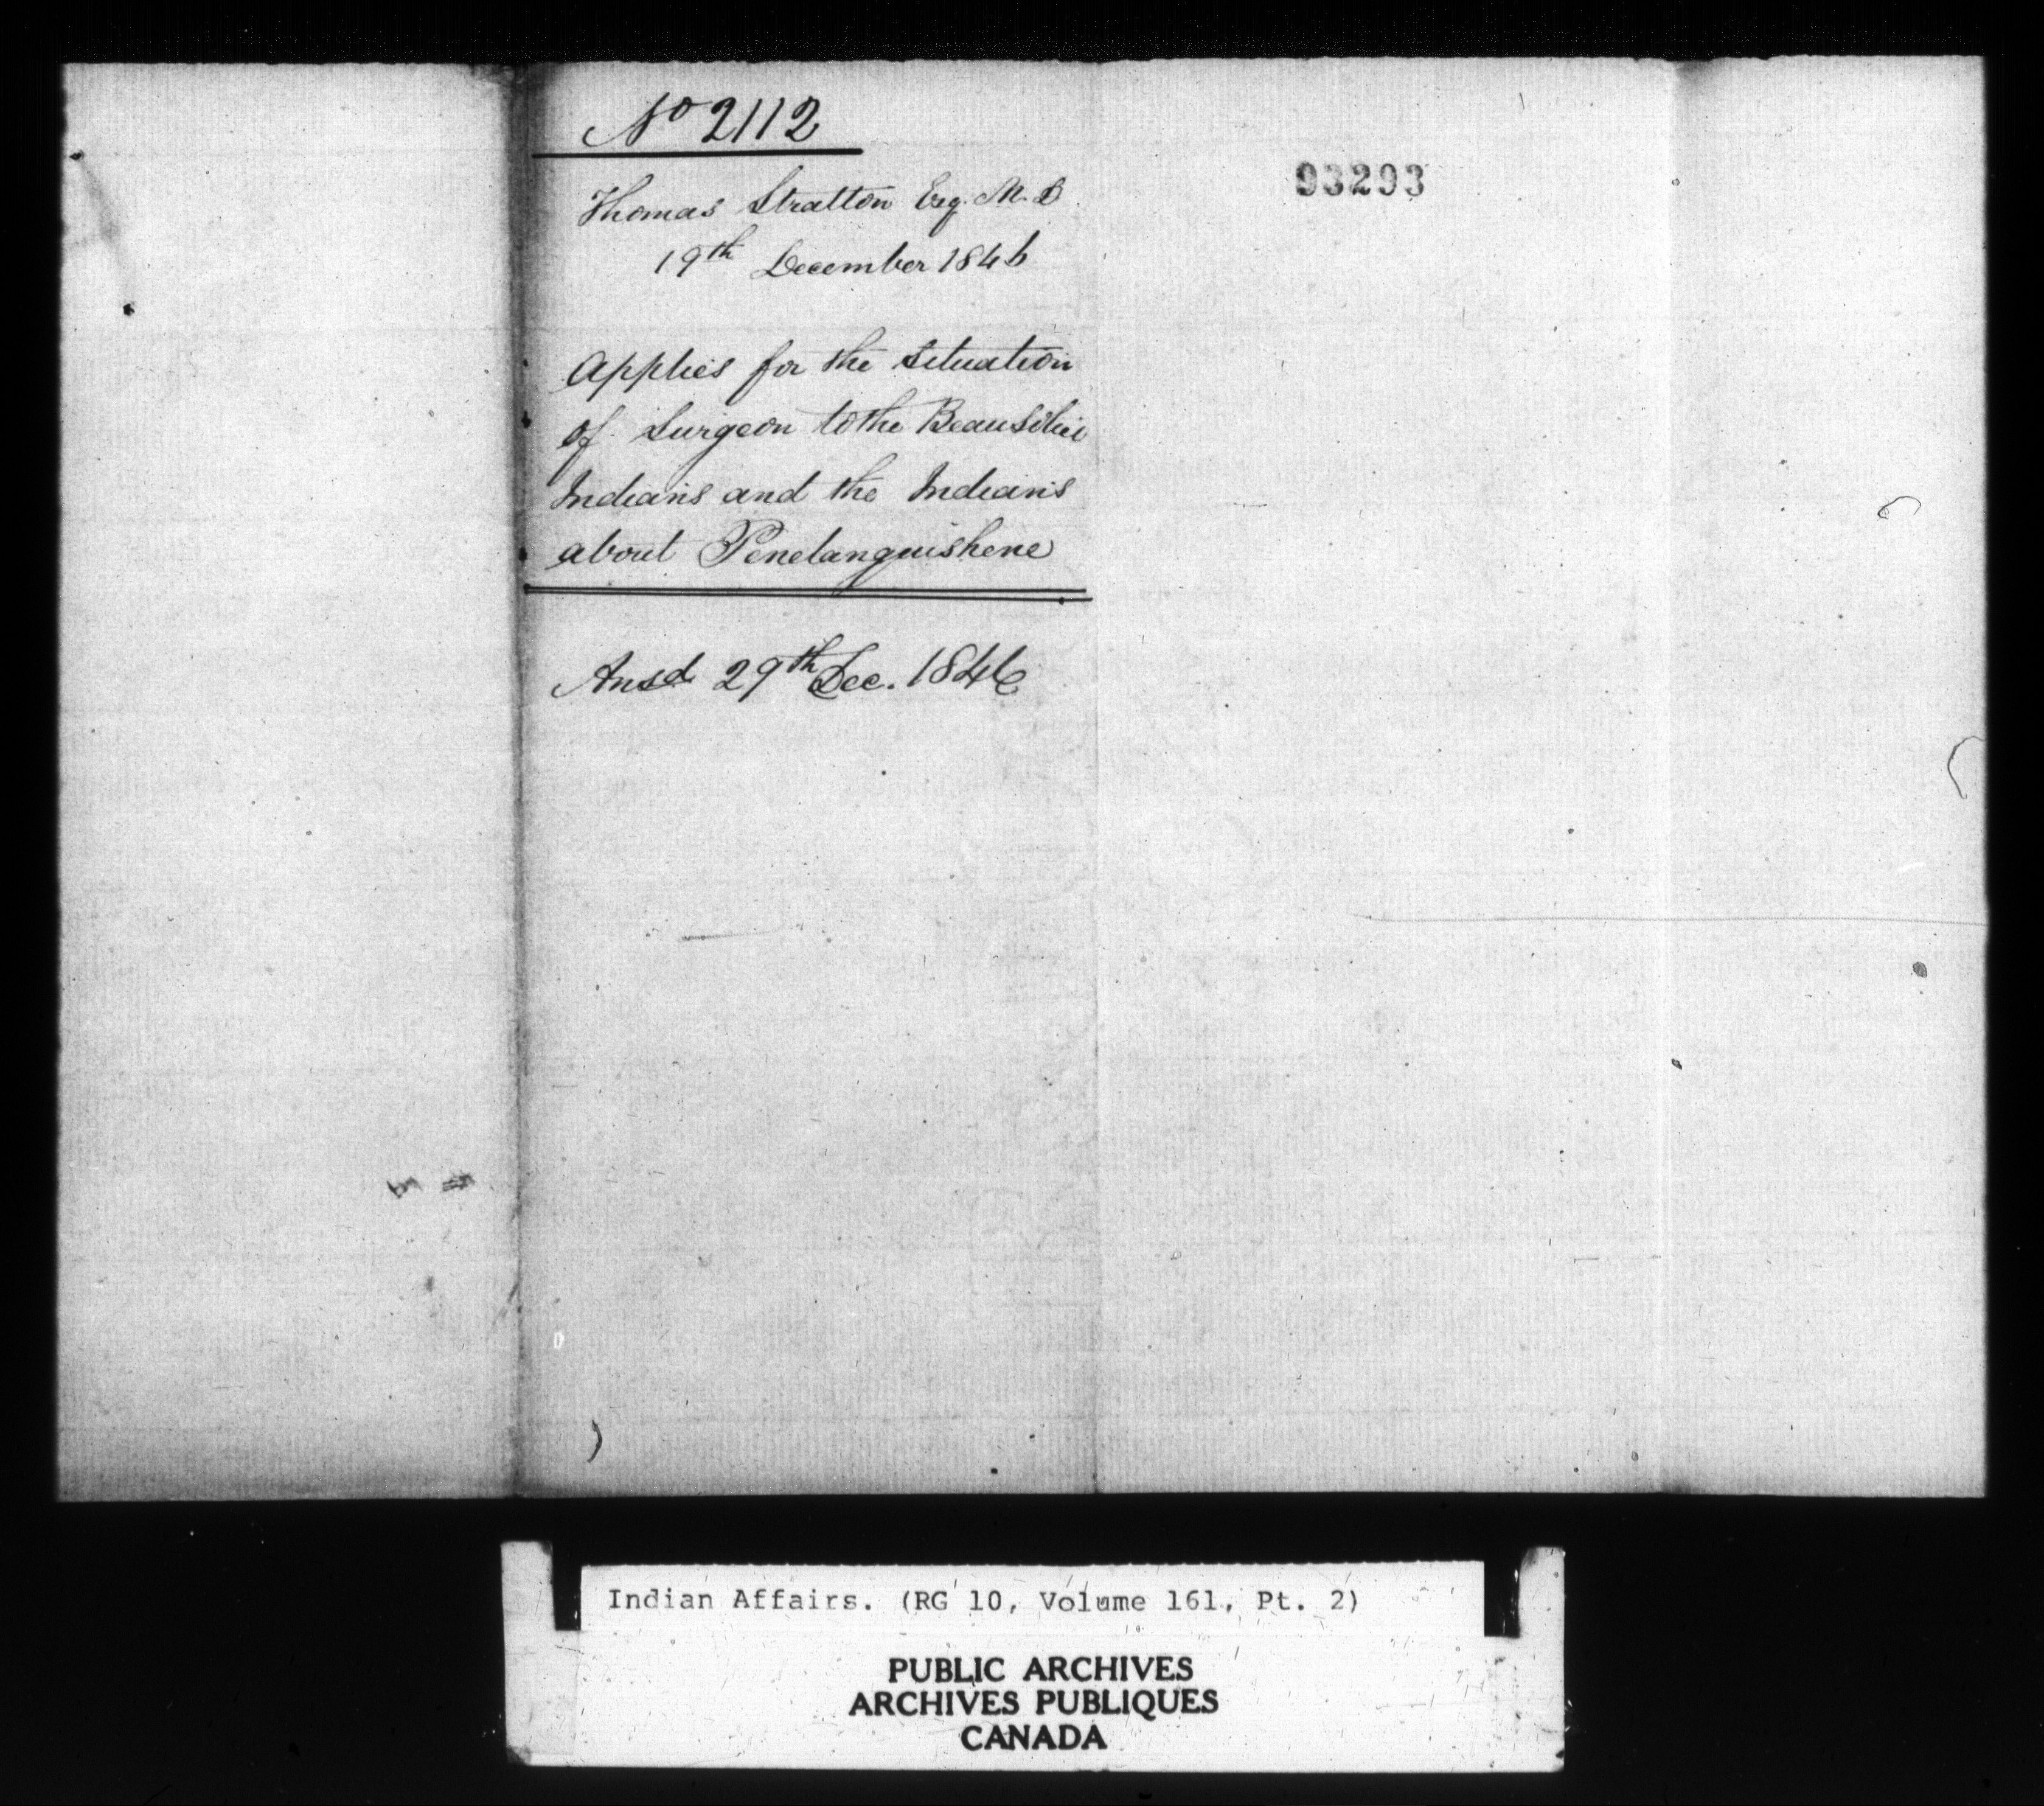 No 2112
Thomas Stratton Esq. M.D.
19th December 1846
93293
Applies for the Situation
of Surgeon to the Beausoliei
Indians and the Indians
about Penetanguishene
Ansd 29th Dec. 1846
Indian Affairs. (RG 10, Volume 161, Pt. 2)
PUBLIC ARCHIVES
ARCHIVES PUBLIQUES
CANADA